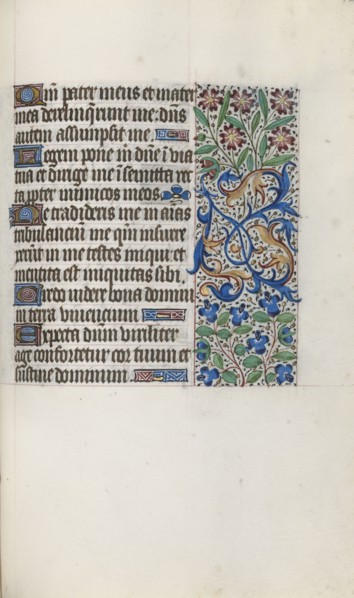 Qm̄ pater meus et mater
mea derelinq̄runt me: dn̄s
autem assumpsit me.
Legem pone m̄ dn̄e ī via
tua et dirige me ī semitta rec
ta ꝓpter inimicos meos.
Ne tradideris me in aīas
tribulanciū me qm̄ insurre
xerūt in me testes iniqui et
mentita est iniquitas sibi.
Credo videre bona domini
in terra vivencium
Expecta dūm viriliter
age confortetur cor tuum et
sustine dominum.